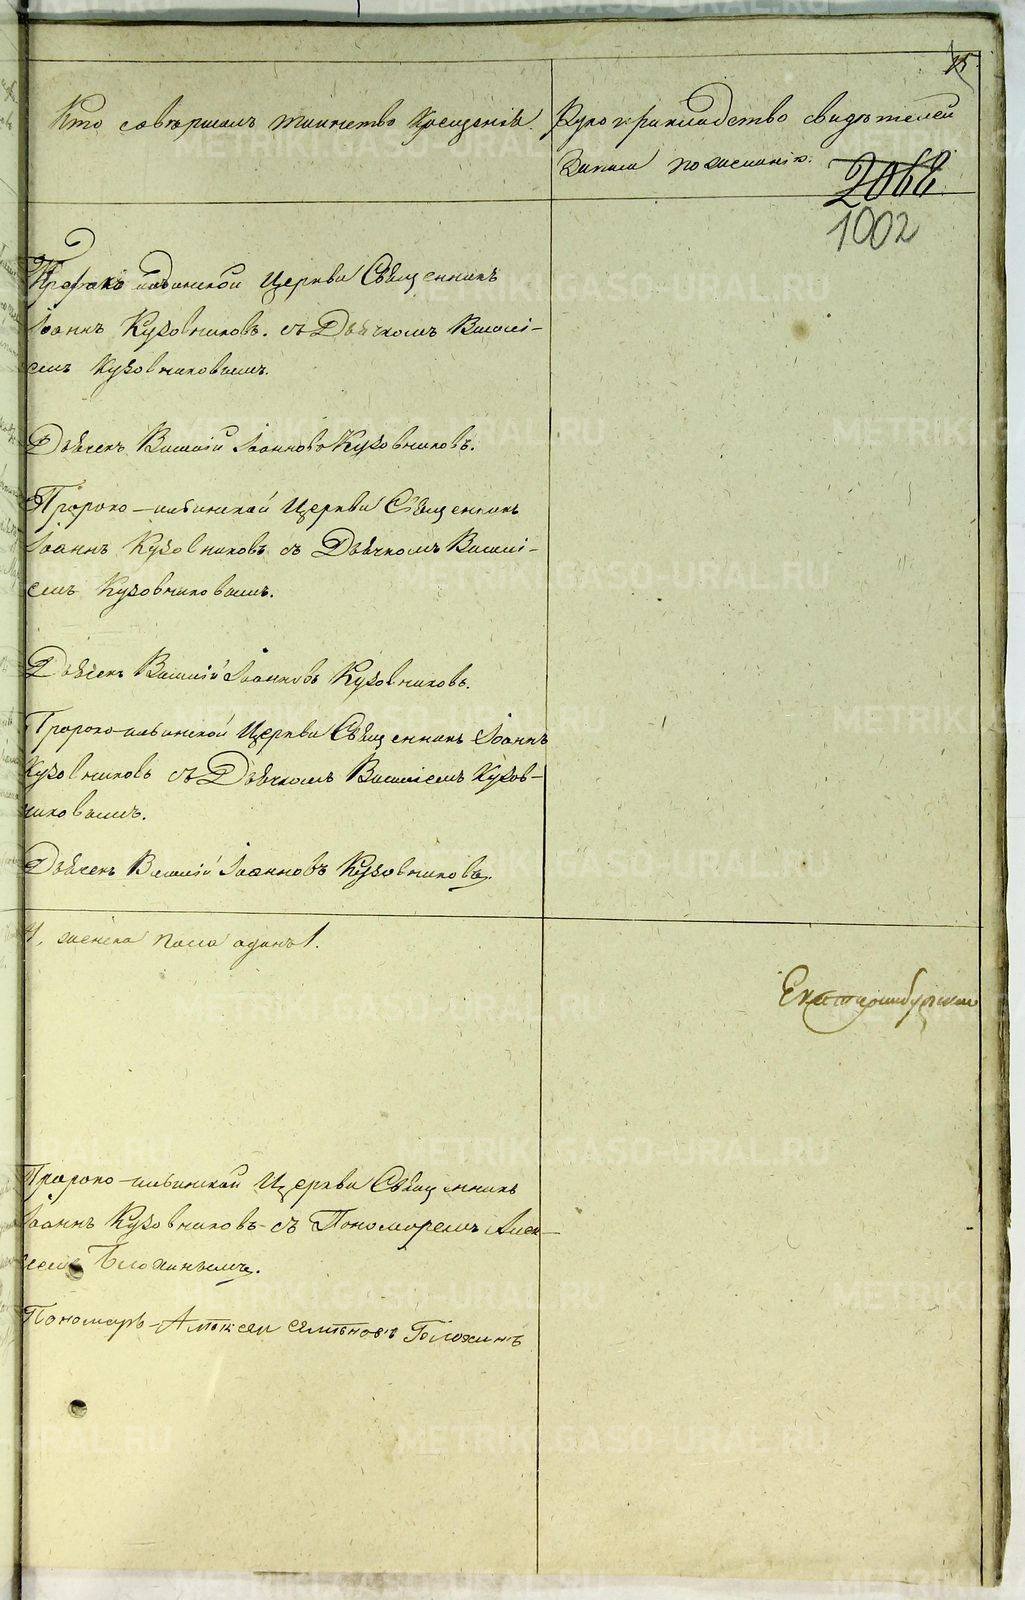 15
Кто совершалъ таинство крещенія.
Рукоприкладство свидѣтелей
записи по желанію.
2068
1002
Пророко-ильинской Церкви Священникъ
Іоаннъ Кузовниковъ. съ Дьячкомъ Василі-
емъ Кузовниковымъ.
Дьячекъ Василій Іоанновъ Кузовниковъ.
Пророко-ильинской Церкви Священникъ
Іоаннъ Кузовниковъ съ Дьячкомъ Василі-
емъ Кузовниковымъ.
Дьячекъ Василій Іоанновъ Кузовниковъ.
Пророко-ильинской Церкви Священникъ Іоаннъ
Кузовниковъ съ Дьячкомъ Василіемъ Кузов-
никовымъ.
Дьячекъ Василій Іоанновъ Кузовниковъ.
женска пола одинъ 1.
Екатеринбургской
Пророко-ильинской Церкви Священникъ
Іоаннъ Кузовниковъ съ Пономаремъ Алек-
Пономарь Алексѣй
METRIKI.GASO-URAL.RU